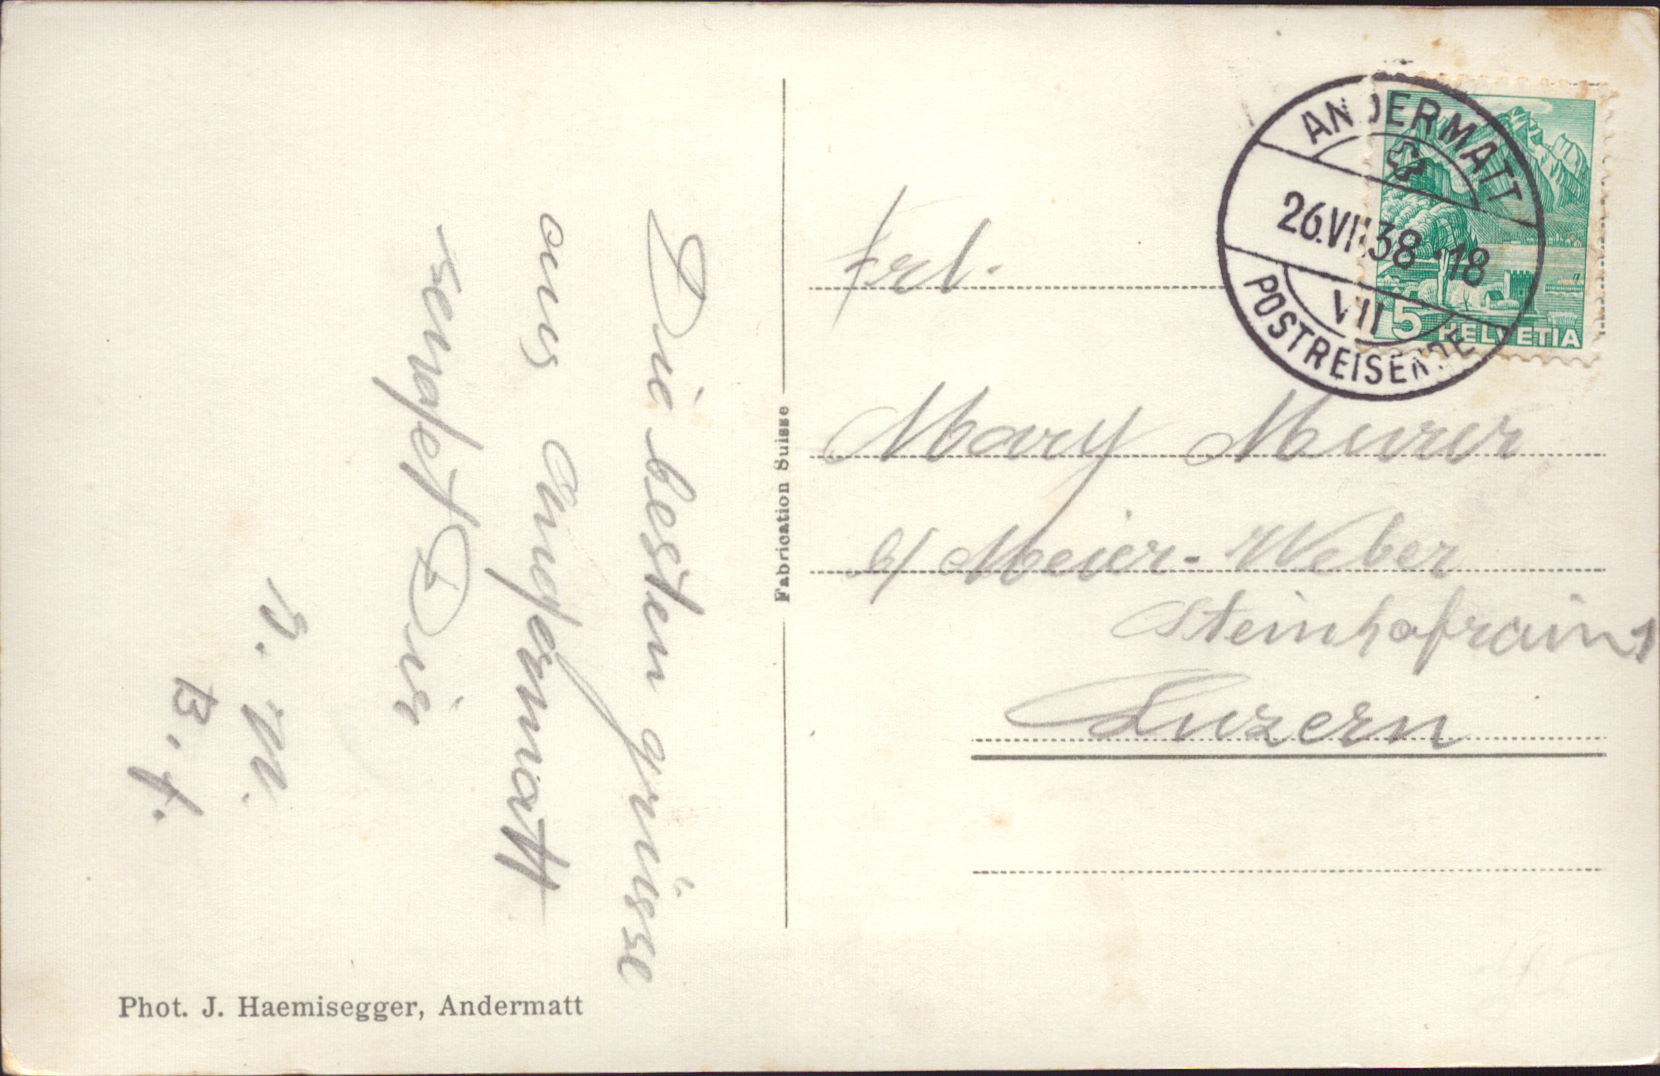 Die besten grüsse
aus Andermatt
sendet Dir
B. f.
Phot. J. Haemisegger, Andermatt
Fabrication Suisse
ANDERMATT
26.VII.38-18
VII
POSTREISENDE
5 HELVETIA
Frl.
Mary Murer
b/ Meier-Weber
Steinhofrain 1
Luzern